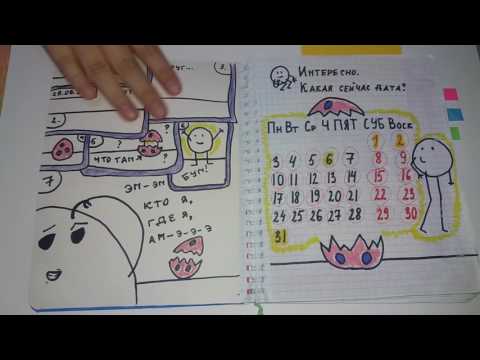 3.
2.
?
6
ЧТО ТАМ
?
БУМ!
ЭМ-ЭМ
КТО Я,
ГДЕ Я,
АМ-Э-Э-Э
ИНТЕРЕСНО.
КАКАЯ СЕЙЧАС ДАТА?
ПН ВТ СР Ч ПЯТ СУБ ВОСК
1 2
3 4 5 6 7 8 9
10 11 12 13 14 15 16
17 18 19 20 21 22 23
24 25 26 27 28 29 30
31